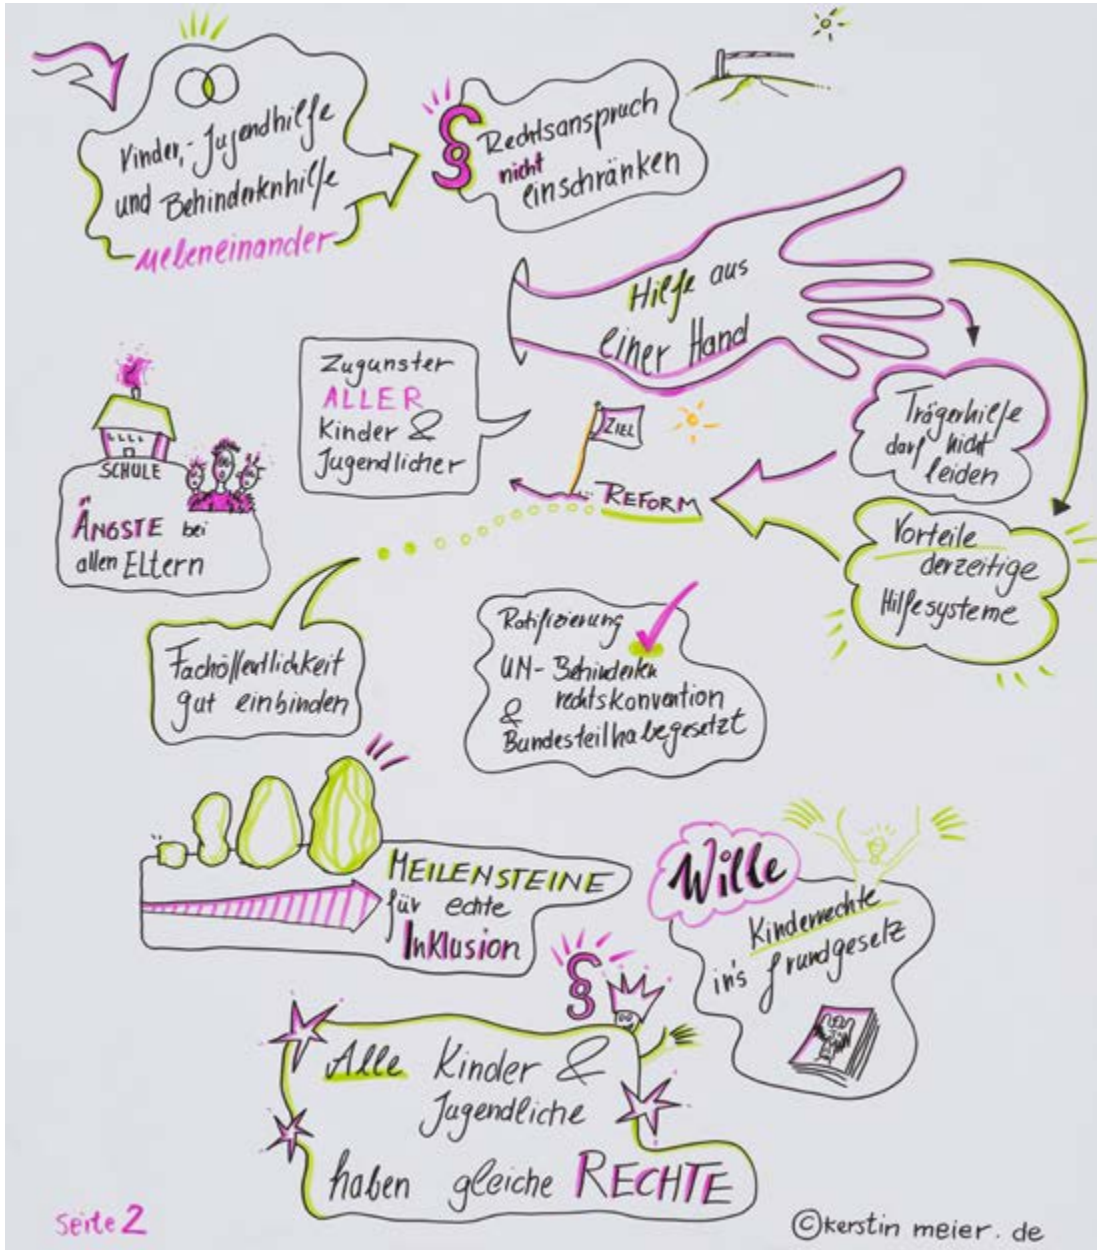 Kinder,- Jugendhilfe
und Behindertenhilfe
Nebeneinander
§ Rechtsanspruch
nicht
einschränken
Hilfe aus
einer Hand
Zugunster
ALLER
Kinder &
Jugendlicher
ZIEL
REFORM
Trägerhilfe
darf nicht
leiden
Vorteile
derzeitige
Hilfesysteme
SCHULE
ÄNGSTE bei
allen Eltern
Fachöffentlichkeit
gut einbinden
Ratifizierung
UN-Behinderten
rechtskonvention
&
Bundesteilhabegesetzt
MEILENSTEINE
für echte
Inklusion
Wille
Kinderrechte
in's Grundgesetz
§
Alle Kinder &
Jugendliche
haben gleiche RECHTE
Seite 2
©kerstin meier.de